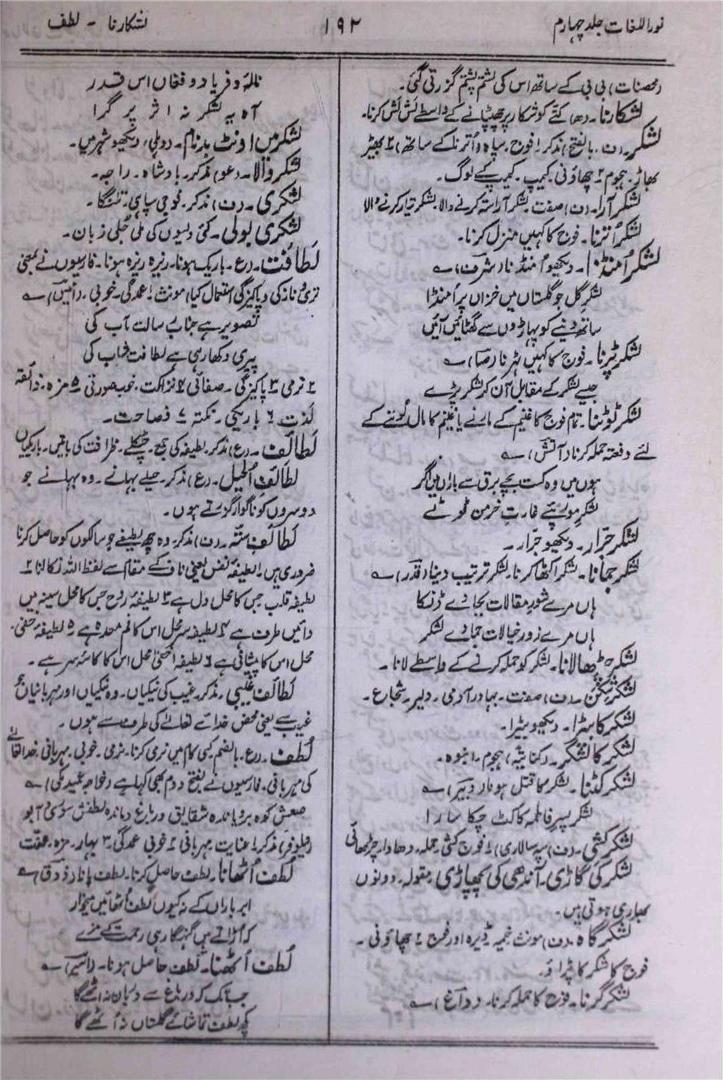 نور اللغات جلد چہارم
۱۹۲
لشکارنا - لطف
(محصنات) بی بی کے ساتھ اس کی لشتم پشتم گزرتی گئی۔
لشکارنا۔ (ھ) کتے کو شکار پر جھپٹانے کے واسطے لش لش کرنا۔
لشکر۔ (ف۔ بالفتح) مذکر۔ ۱ فوج۔ سپاہ (اترنا کے ساتھ) ۲ بھیڑ
بھاڑ۔ ہجوم ۳ چھاؤنی۔ کیمپ۔ کیمپ کے لوگ۔
لشکر آرا۔ (ف) صفت۔ لشکر آراستہ کرنے والا۔ لشکر تیار کرنے والا
لشکر اُترنا۔ فوج کا کہیں منزل کرنا۔
لشکر اُمنڈنا۔ دیکھو اُمنڈنا (شرف) ؎
لشکرِ گل جو گلستاں میں خزاں پر امنڈا
ساتھ دینے کو پہاڑوں سے گھٹائیں آئیں
لشکر پڑنا۔ فوج کا کہیں ٹہرنا (رضا) ؎
جیسے لشکر کے مقابل آن کر لشکر پڑے
لشکر ٹوٹنا۔ تمام فوج کا غنیم کے مارنے یا غنیم کا مال لوٹنے کے
لئے دفعتہ حملہ کرنا (آتش) ؎
ہوں میں وہ کشت بچے برق سے باراں میں اگر
لشکر مور پئے غارت خرمن ٹوٹے
لشکر جرّار۔ دیکھو جرّار۔
لشکر جمانا۔ لشکر اکٹھا کرنا۔ لشکر ترتیب دینا (قدر) ؎
ہاں مرے شور مقالات بجائے ڈنکا
ہاں مرے زور خیالات جمائے لشکر
لشکر چڑھا لانا۔ لشکر کو حملہ کرنے کے واسطے لانا۔
لشکر شکن۔ (ف) صفت۔ بہادر آدمی۔ دلیر۔ شجاع۔
لشکر کا سڑا۔ دیکھو بیڑا۔
لشکر کا لشکر۔ (کنایۃً) ہجوم۔ انبوہ۔
لشکر کٹنا۔ لشکر کا قتل ہونا (دبیر) ؎
لشکر پسرِ فاطمہ کا کٹ چکا سارا
لشکر کشی۔ (ف) سپہ سالاری) ۲ فوج کشی۔ حملہ۔ دھاوا۔ چڑھائی
لشکر کی گاڑی۔ آندھی کی پچھاڑی مقولہ۔ دونوں
بھاری ہوتی ہیں۔
لشکر گاہ۔ (ف) مونث۔ خیمہ ڈیرہ اور فوج ۲ چھاؤنی۔
فوج کا لشکر کا پڑاؤ۔
لشکر گرنا۔ فوج کا حملہ کرنا۔ (داغ) ؎
نالہ و فریاد و فغاں اس قدر
آہ یہ لشکر نہ اثر پر گرا
لشکر میں اونٹ بدنام۔ (دہلی) دیکھو شہر میں۔
لشکر والا۔ (عو) مذکر۔ بادشاہ۔ راجہ۔
لشکری۔ (ف) مذکر۔ فوجی سپاہی۔ تلنگا۔
لشکری بولی۔ کئی دیسوں کی ملی جلی زبان۔
لطافت۔ (ع۔ باریک ہونا۔ ریزہ ریزہ ہونا۔ فارسیوں نے بمعنی
تری و نازکی و پاکیزگی استعمال کیا) مونث ۱ عمدگی۔ خوبی۔ (انیس) ؎
تصویر ہے جنابِ رسالت مآب کی
پیری دکھا رہی ہے لطافت شباب کی
۲ نرمی ۳ پاکیزگی۔ صفائی ۴ نزاکت۔ خوب صورتی ۵ مزہ۔ ذائقہ
لذت ۶ باریکی۔ نکتہ ۷ فصاحت۔
لطائف۔ (ع) مذکر۔ لطیفہ کی جمع۔ چٹکلے۔ ظرافت کی باتیں۔ باریکیاں
لطائف الحیل۔ (ع) مذکر۔ حیلے بہانے۔ وہ بہانے جو
دوسروں کو ناگوار گزرتے ہوں۔
لطائف ستہ۔ (ف) مذکر۔ وہ چھ لطیفے جو سالکوں کو حاصل کرنا
ضروری ہیں ۱ لطیفہ نفس یعنی ناف کے مقام سے لفظ اللہ نکالنا ۲
لطیفہ قلب جس کا محل دل ہے ۳ لطیفہ روح جس کا محل سینہ میں
دائیں طرف ہے ۴ لطیفہ سر محل اس کا فم معدہ ہے ۵ لطیفہ خفی
محل اس کا پیشانی ہے ۶ لطیفہ اخفیٰ محل اس کا کاسۂ سر ہے۔
لطائف غیبی۔ مذکر۔ غیب کی نیکیاں۔ وہ نیکیاں اور مہربانیاں جو
غیب سے یعنی محض خدائے تعالےٰ کی طرف سے ہوں۔
لطف۔ (ع۔ بالضم کسی کام میں نرمی کرنا۔ نرمی۔ خوبی۔ مہربانی۔ خدا تعالےٰ
کی مہربانی۔ فارسیوں نے بفتح دوم بھی کہا ہے (خواجہ عمید لومکی) ؎
(نیلوفر) مذکر ۱ عنایت۔ مہربانی ۲ خوبی عمدگی ۳ بہار۔ مزہ۔ حظ
لطف اُٹھانا۔ لطف حاصل کرنا۔ لطف پانا (ذوق) ؎
ابر باراں کے نہ کیوں لطف اُٹھائیں میخوار
کہ اُڑاتے ہیں گنہگار ہی رحمت کے مزے
لطف اُٹھنا۔ لطف حاصل ہونا۔ (اسیر) ؎
جب تک کہ دردِ داغ سے دہاں نہ اٹھے گا
کچھ لطف تماشائے گلستاں نہ اُٹھے گا